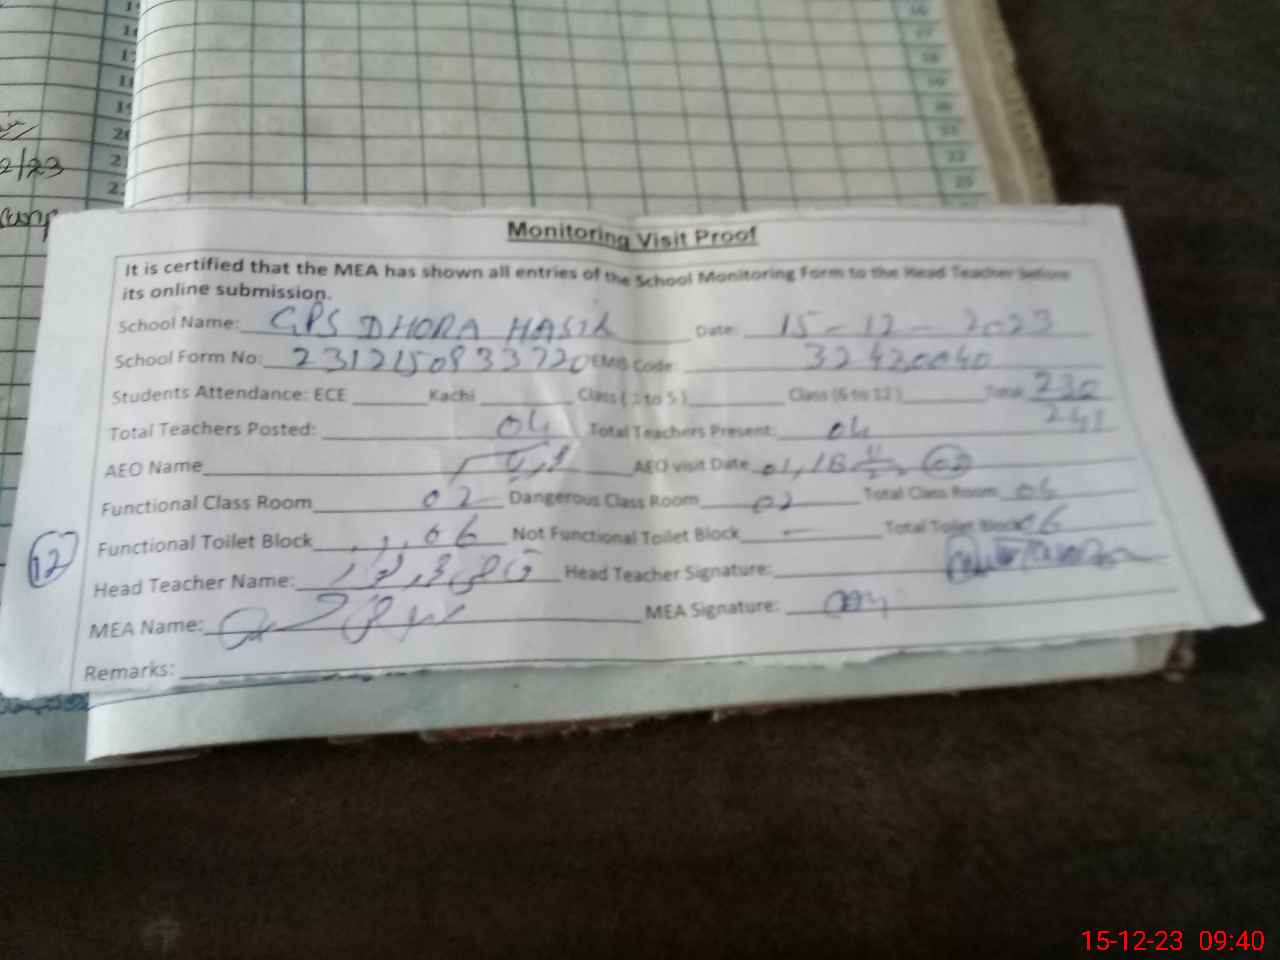 2/23
Monitoring Visit Proof
It is certified that the MEA has shown all entries of the School Monitoring Form to the Head Teacher before
its online submission.
School Name: GPS DHORA HASIL Date: 15-12-2023
School Form No: 2312150833720 EMIS Code: 32420040
Students Attendance: ECE Kachi Class (1 to 5) Class (6 to 12) Total 230
241
Total Teachers Posted: 04 Total Teachers Present: 04
AEO Name AEO visit Date 01, 18 02
Functional Class Room 02 Dangerous Class Room 02 Total Class Room 04
Functional Toilet Block 06 Not Functional Toilet Block - Total Toilet Block 06
12
Head Teacher Name: Head Teacher Signature:
MEA Name: MEA Signature:
Remarks:
15-12-23 09:40